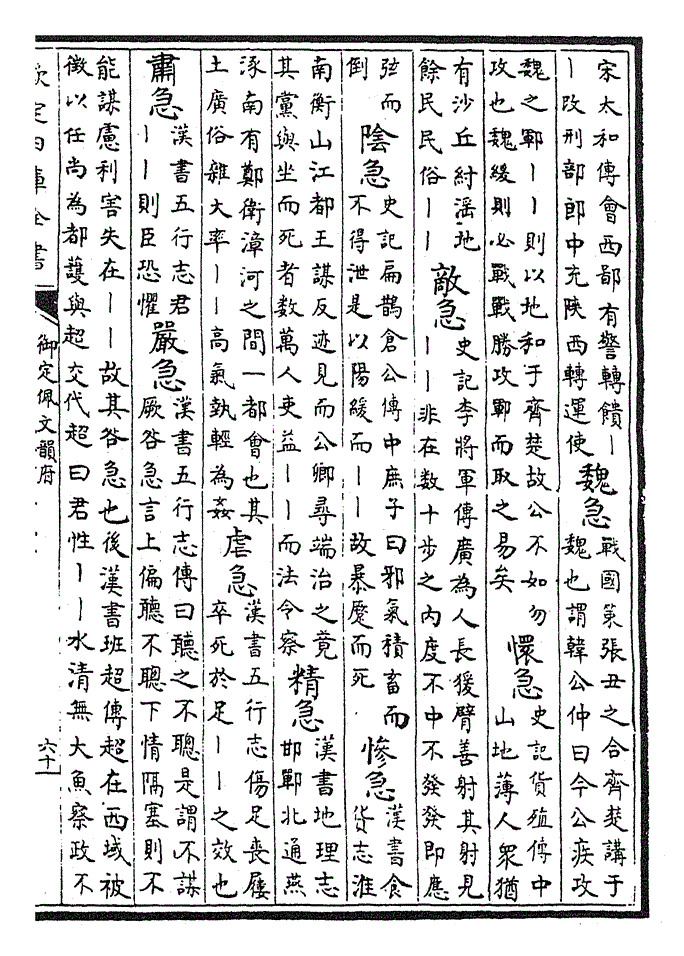 宋太和傳會西鄙有警轉饋丨
丨改刑部郎中充陝西轉運使
魏急
戰國策張丑之合齊楚講于
魏也謂韓公仲曰今公疾攻
魏之鄆丨丨則以地和于齊楚故公不如勿
攻也魏緩則必戰戰勝攻鄆而取之易矣
懷急
史記貨殖傳中
山地薄人衆猶
有沙丘紂滛地
餘民民俗丨丨
敵急
史記李將軍傳廣為人長猨臂善射其射見
丨丨非在数十步之内度不中不發發即應
弦而
倒
陰急
史記扁鵲倉公傳中庶子曰邪氣積畜而
不得泄是以陽緩而丨丨故暴蹷而死
慘急
漢書食
貨志淮
南衡山江都王謀反迹見而公卿尋端治之竟
其黨與坐而死者数萬人吏益丨丨而法令察
精急
漢書地理志
邯鄲北通燕
涿南有鄭衛漳河之間一都會也其
土廣俗雜大率丨丨高氣執輕為姦
虐急
漢書五行志傷足喪屨
卒死於足丨丨之效也
肅急
漢書五行志君
丨丨則臣恐懼
嚴急
漢書五行志傳曰聽之不聰是謂不謀
厥咎急言上偏聽不聰下情隔塞則不
能謀慮利害失在丨丨故其咎急也後漢書班超傳超在西域被
徵以任尚為都護與超交代超曰君性丨丨水清無大魚察政不
欽定四庫全書
御定佩文韻府
六十